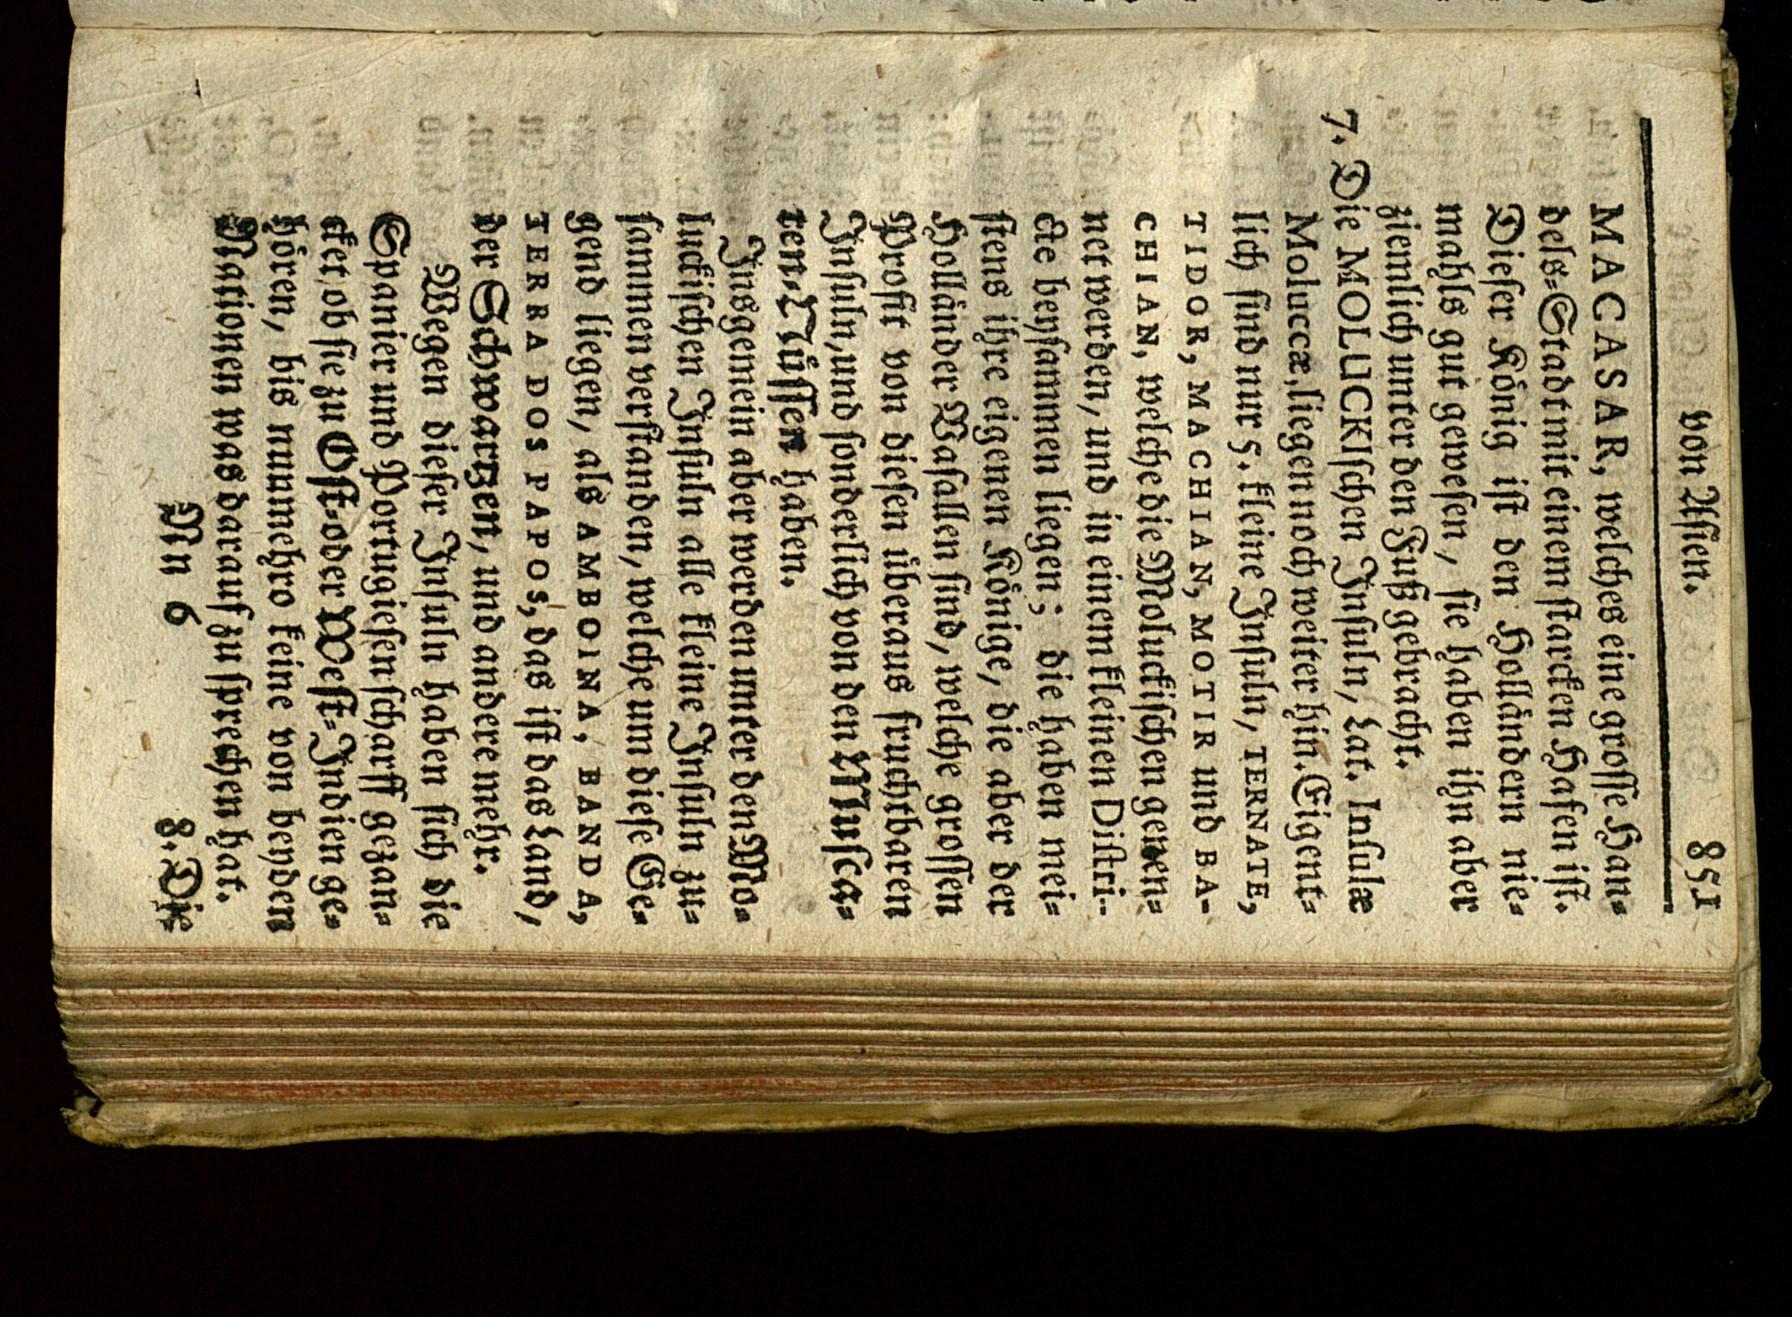 von Asien. 851
MACASAR, welches eine grosse Han-
dels-Stadt mit einem starcken Hafen ist.
Dieser König ist den Holländern nie-
mahls gut gewesen, sie haben ihn aber
ziemlich unter den Fuß gebracht.
7. Die MOLUCKIschen Insuln, Lat. Insulæ
Moluccæ, liegen noch weiter hin. Eigent-
lich sind nur 5. kleine Insuln, TERNATE,
TIDOR, MACHIAN, MOTIR und BA-
CHIAN, welche die Moluckischen genen-
net werden, und in einem kleinen Distri-
cte beysammen liegen; die haben mei-
stens ihre eigenen Könige, die aber der
Holländer Vasallen sind, welche grossen
Profit von diesen überaus fruchtbaren
Insuln, und sonderlich von den Musca-
ten-Nüssen haben.
Insgemein aber werden unter den Mo-
luckischen Insuln alle kleine Insuln zu-
sammen verstanden, welche um diese Ge-
gend liegen, als AMBOINA, BANDA,
TERRA DOS PAPOS, das ist das Land,
der Schwartzen, und andere mehr.
Wegen dieser Insuln haben sich die
Spanier und Portugiesen scharff gezan-
cket, ob sie zu Ost- oder West-Indien ge-
hören, bis nunmehro keine von beyden
Nationen was darauf zu sprechen hat.
Nn 6 8. Die